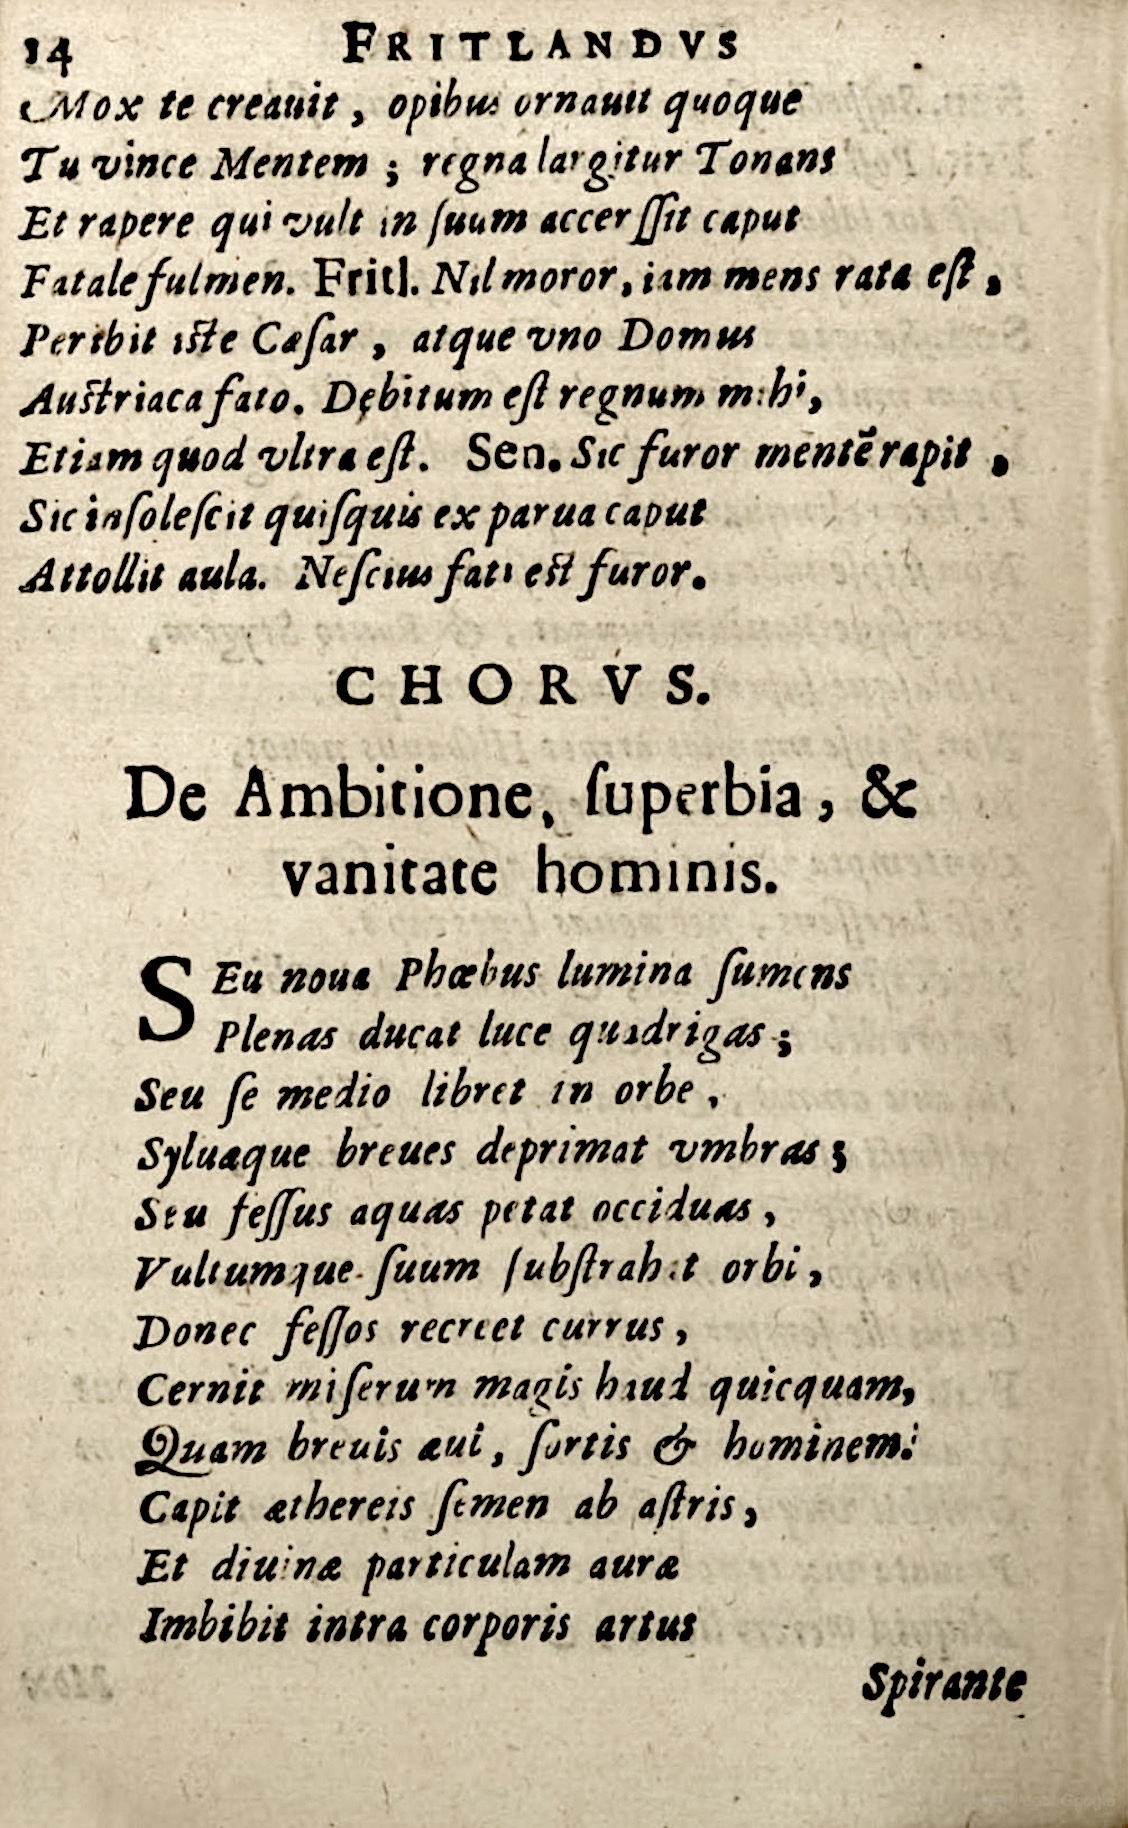 14 FRITLANDVS
Mox te creauit, opibus ornauit quoque
Tu vince Mentem; regna largitur Tonans
Et rapere qui vult in ſuum accerſſit caput
Fatale fulmen. Fritl. Nil moror, iam mens rata eſt,
Peribit iſte Cæſar, atque vno Domus
Auſtriaca fato. Dębitum eſt regnum mihi,
Etiam quod vltra eſt. Sen. Sic furor mentē rapit,
Sic inſoleſcit quiſquis ex parua caput
Attollit aula. Neſcius fati eſt furor.
CHORVS.
De Ambitione, ſuperbia, &
vanitate hominis.
SEu noua Phœbus lumina ſumens
Plenas ducat luce quadrigas;
Seu ſe medio libret in orbe,
Syluæque breues deprimat vmbras;
Seu feſſus aquas petat occiduas,
Vultumque ſuum ſubſtrahat orbi,
Donec feſſos recreet currus,
Cernit miſerum magis haud quicquam,
Quam breuis æui, ſortis & hominem:
Capit æthereis ſemen ab aſtris,
Et diuinæ particulam auræ
Imbibit intra corporis artus
Spirante